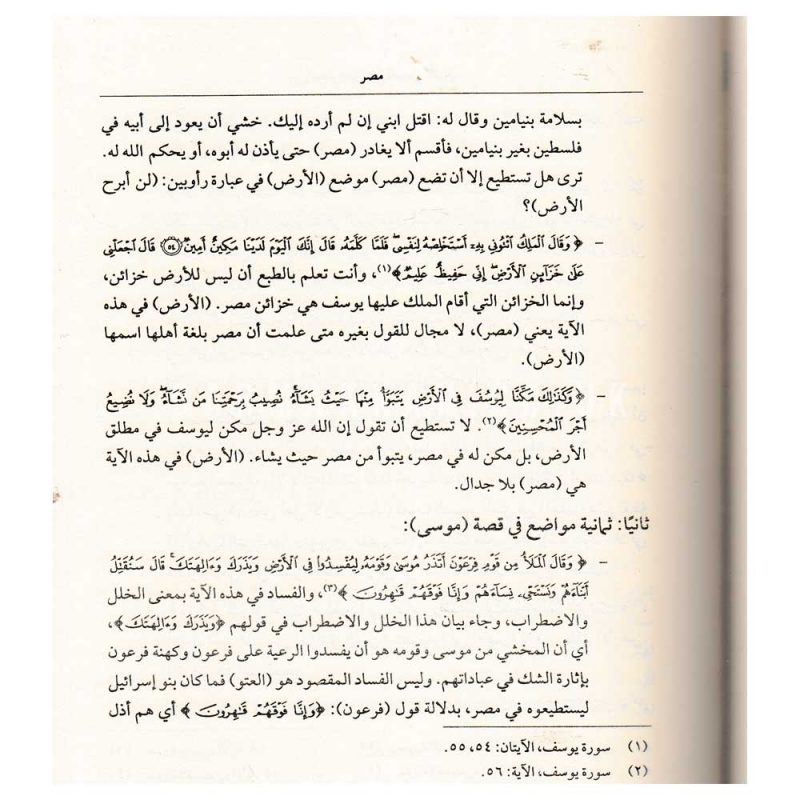 مصر
بسلامة بنيامين وقال له: اقتل ابني إن لم أرده إليك. خشي أن يعود إلى أبيه في
فلسطين بغير بنيامين، فأقسم ألا يغادر (مصر) حتى يأذن له أبوه، أو يحكم الله له.
ترى هل تستطيع إلا أن تضع (مصر) موضع (الأرض) في عبارة رأوبين: (لن أبرح
الأرض)؟
– ﴿ وَقَالَ الْمَلِكُ ائْتُونِي بِهِ أَسْتَخْلِصْهُ لِنَفْسِي فَلَمَّا كَلَّمَهُ قَالَ إِنَّكَ الْيَوْمَ لَدَيْنَا مَكِينٌ أَمِينٌ ۝٥٤ قَالَ اجْعَلْنِي
عَلَىٰ خَزَائِنِ الْأَرْضِ إِنِّي حَفِيظٌ عَلِيمٌ ﴾(١)، وأنت تعلم بالطبع أن ليس للأرض خزائن،
وإنما الخزائن التي أقام الملك عليها يوسف هي خزائن مصر. (الأرض) في هذه
الآية يعني (مصر)، لا مجال للقول بغيره متى علمت أن مصر بلغة أهلها اسمها
(الأرض).
– ﴿ وَكَذَٰلِكَ مَكَّنَّا لِيُوسُفَ فِي الْأَرْضِ يَتَبَوَّأُ مِنْهَا حَيْثُ يَشَاءُ نُصِيبُ بِرَحْمَتِنَا مَن نَّشَاءُ وَلَا نُضِيعُ
أَجْرَ الْمُحْسِنِينَ ﴾(٢). لا تستطيع أن تقول إن الله عز وجل مكن ليوسف في مطلق
الأرض، بل مكن له في مصر، يتبوأ من مصر حيث يشاء. (الأرض) في هذه الآية
هي (مصر) بلا جدال.
ثانيًا: ثمانية مواضع في قصة (موسى):
– ﴿ وَقَالَ الْمَلَأُ مِن قَوْمِ فِرْعَوْنَ أَتَذَرُ مُوسَىٰ وَقَوْمَهُ لِيُفْسِدُوا فِي الْأَرْضِ وَيَذَرَكَ وَءَالِهَتَكَ قَالَ سَنُقَتِّلُ
أَبْنَاءَهُمْ وَنَسْتَحْيِي نِسَاءَهُمْ وَإِنَّا فَوْقَهُمْ قَاهِرُونَ ﴾(٣)، والفساد في هذه الآية بمعنى الخلل
والاضطراب، وجاء بيان هذا الخلل والاضطراب في قولهم ﴿وَيَذَرَكَ وَءَالِهَتَكَ﴾،
أي أن المخشي من موسى وقومه هو أن يفسدوا الرعية على فرعون وكهنة فرعون
بإثارة الشك في عباداتهم. وليس الفساد المقصود هو (العتو) فما كان بنو إسرائيل
ليستطيعوه في مصر، بدلالة قول (فرعون): ﴿وَإِنَّا فَوْقَهُمْ قَاهِرُونَ ﴾ أي هم أذل
(١) سورة يوسف، الآيتان: ٥٤، ٥٥.
(٢) سورة يوسف، الآية: ٥٦.